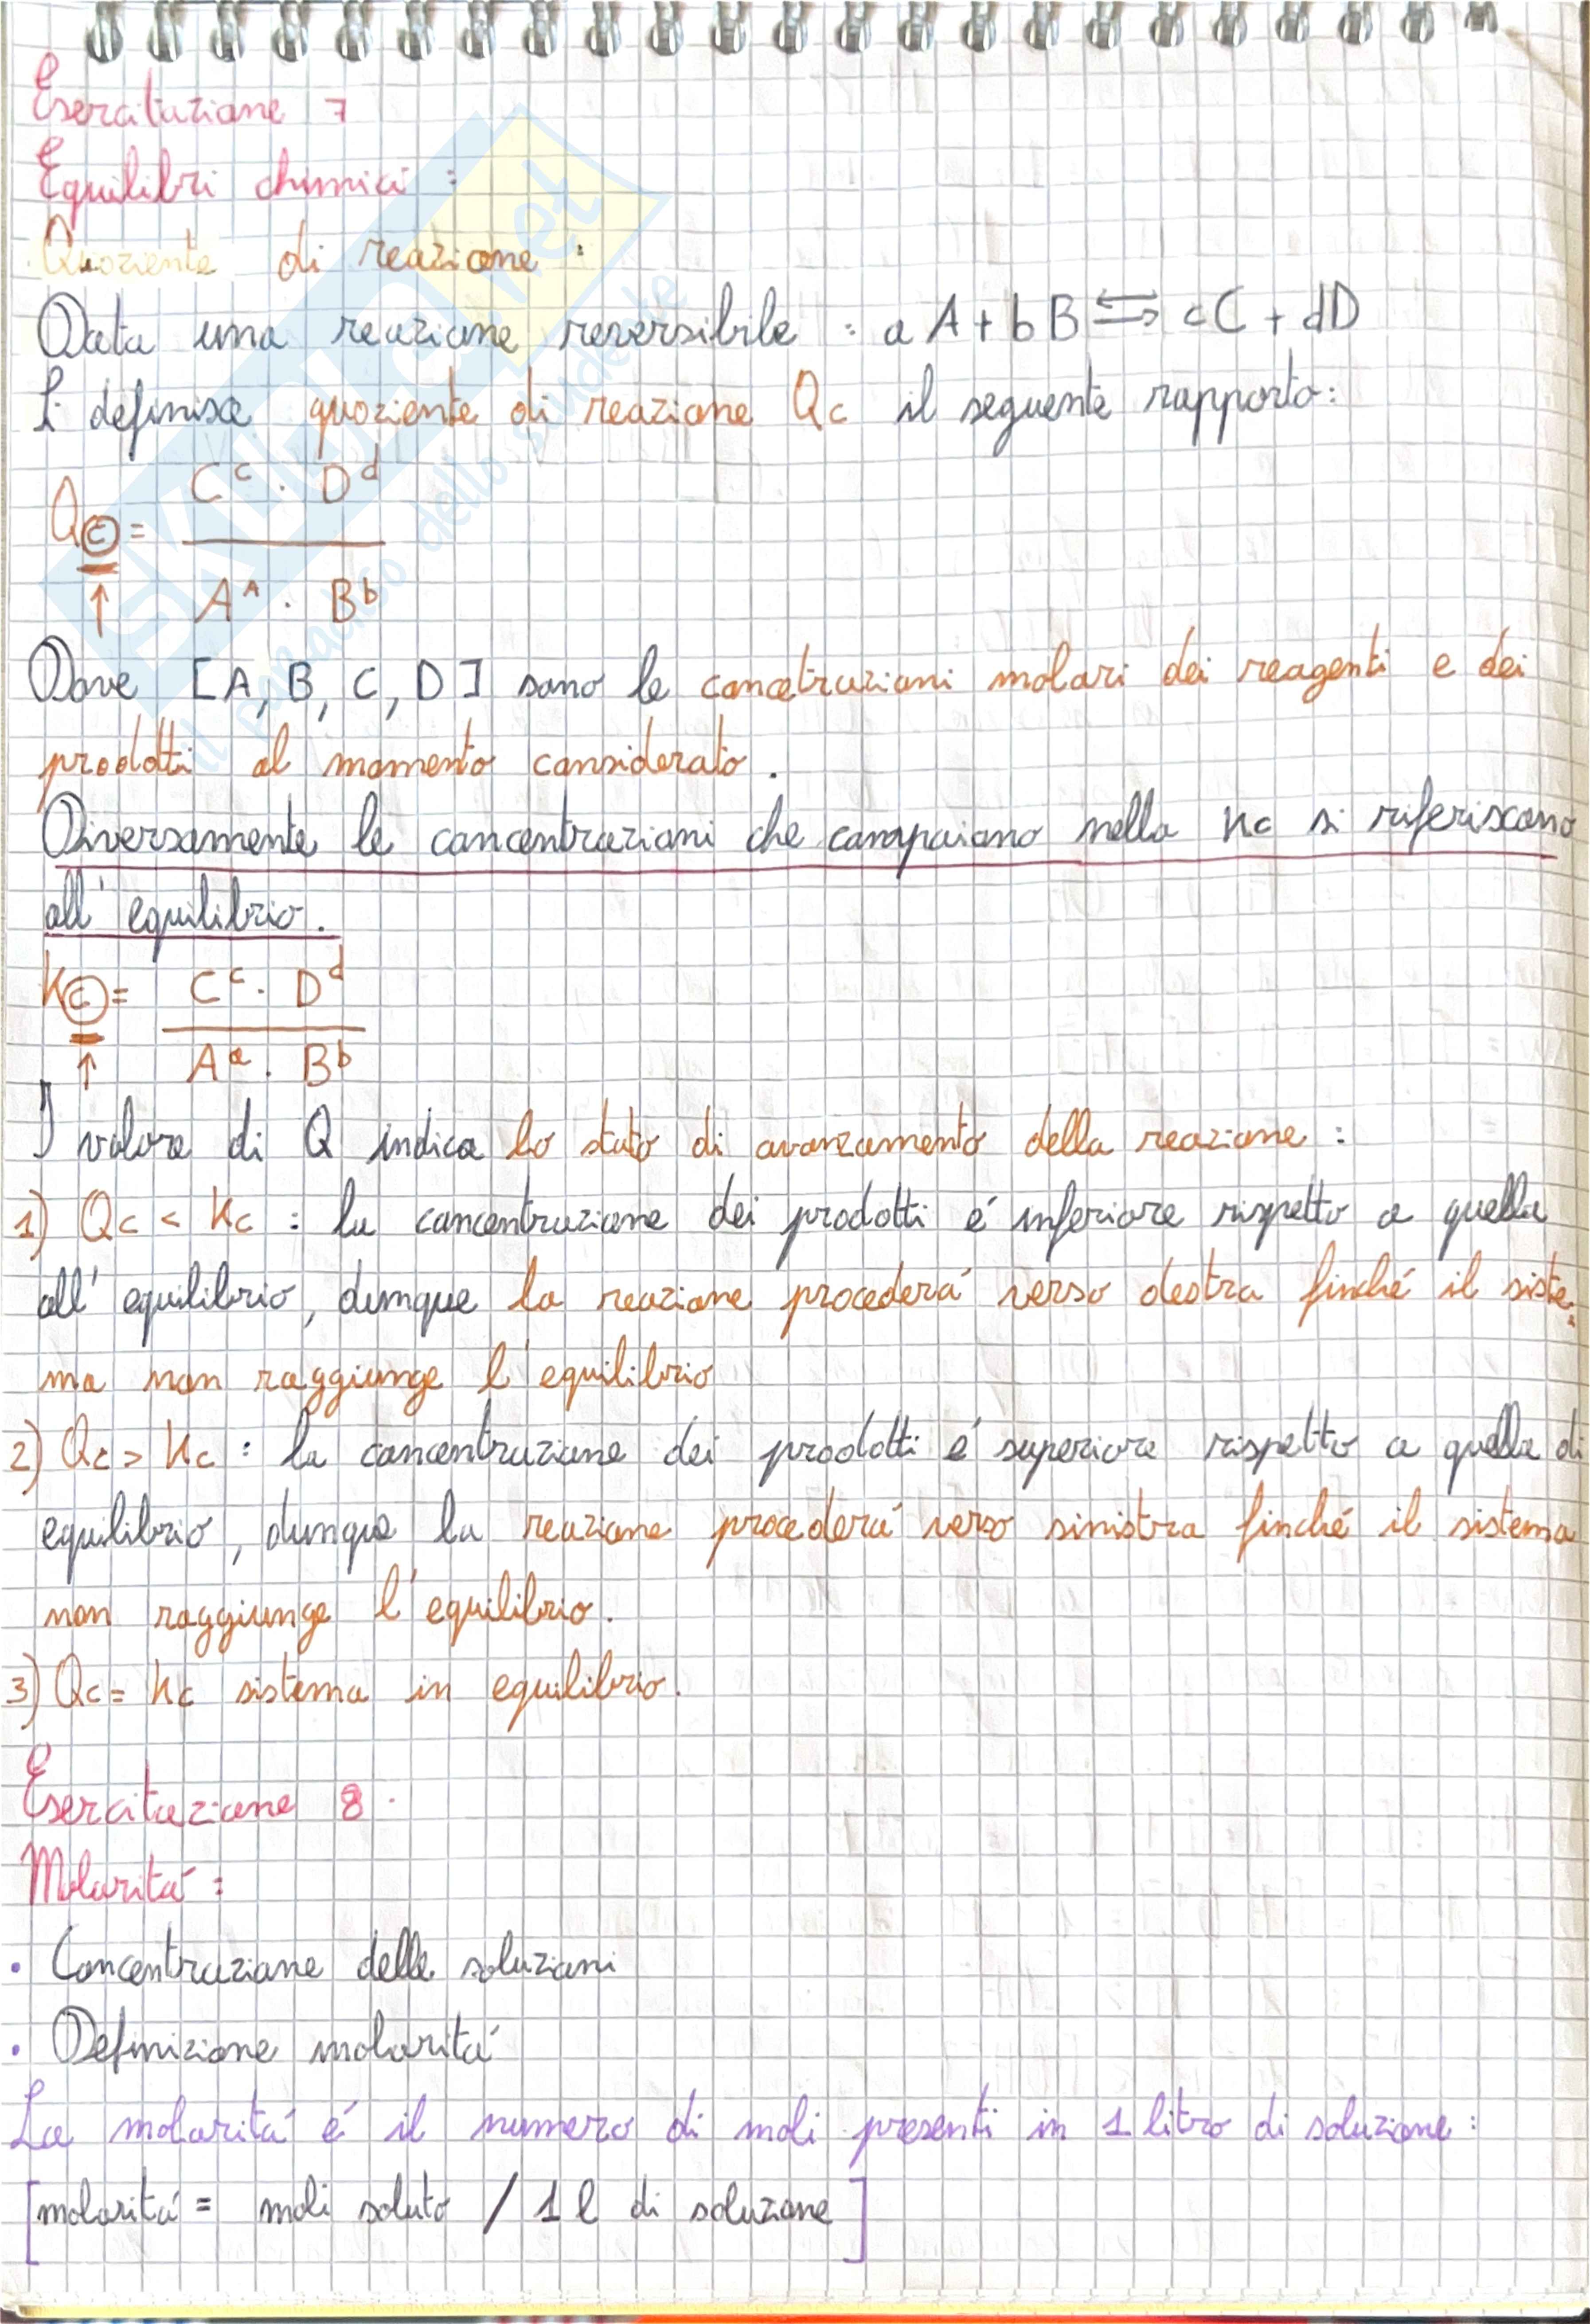 Esercitazione 7
Equilibri chimici :
Quoziente di reazione :
Data una reazione reversibile : a A + b B ⇆ cC + dD
Si definisce quoziente di reazione Qc il seguente rapporto:
Qc = C^c · D^d / A^A · B^b
↑
Dove [A, B, C, D] sono le concetrazioni molari dei reagenti e dei
prodotti al momento considerato.
Diversamente le concentrazioni che compaiono nella Kc si riferiscono
all' equilibrio.
Kc = C^c · D^d / A^a · B^b
↑
I valore di Q indica lo stato di avanzamento della reazione :
1) Qc < Kc : la concentrazione dei prodotti é inferiore rispetto a quella
all' equilibrio, dunque la reazione procederá verso destra finché il siste
ma non raggiunge l'equilibrio
2) Qc > Kc : la concentrazione dei prodotti é superiore rispetto a quella di
equilibrio, dunque la reazione procederá verso sinistra finché il sistema
non raggiunge l'equilibrio.
3) Qc = Kc sistema in equilibrio.
Esercitazione 8.
Molaritá :
• Concentrazione delle soluzioni
• Definizione molaritá
La molaritá é il numero di moli presenti in 1 litro di soluzione :
[molaritá = moli soluto / 1 l di soluzione]
SKUOLA.net
il paradiso dello studente